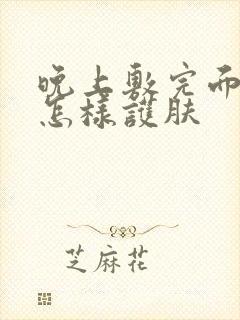 晚上敷完面
怎樣護肤
芝麻花